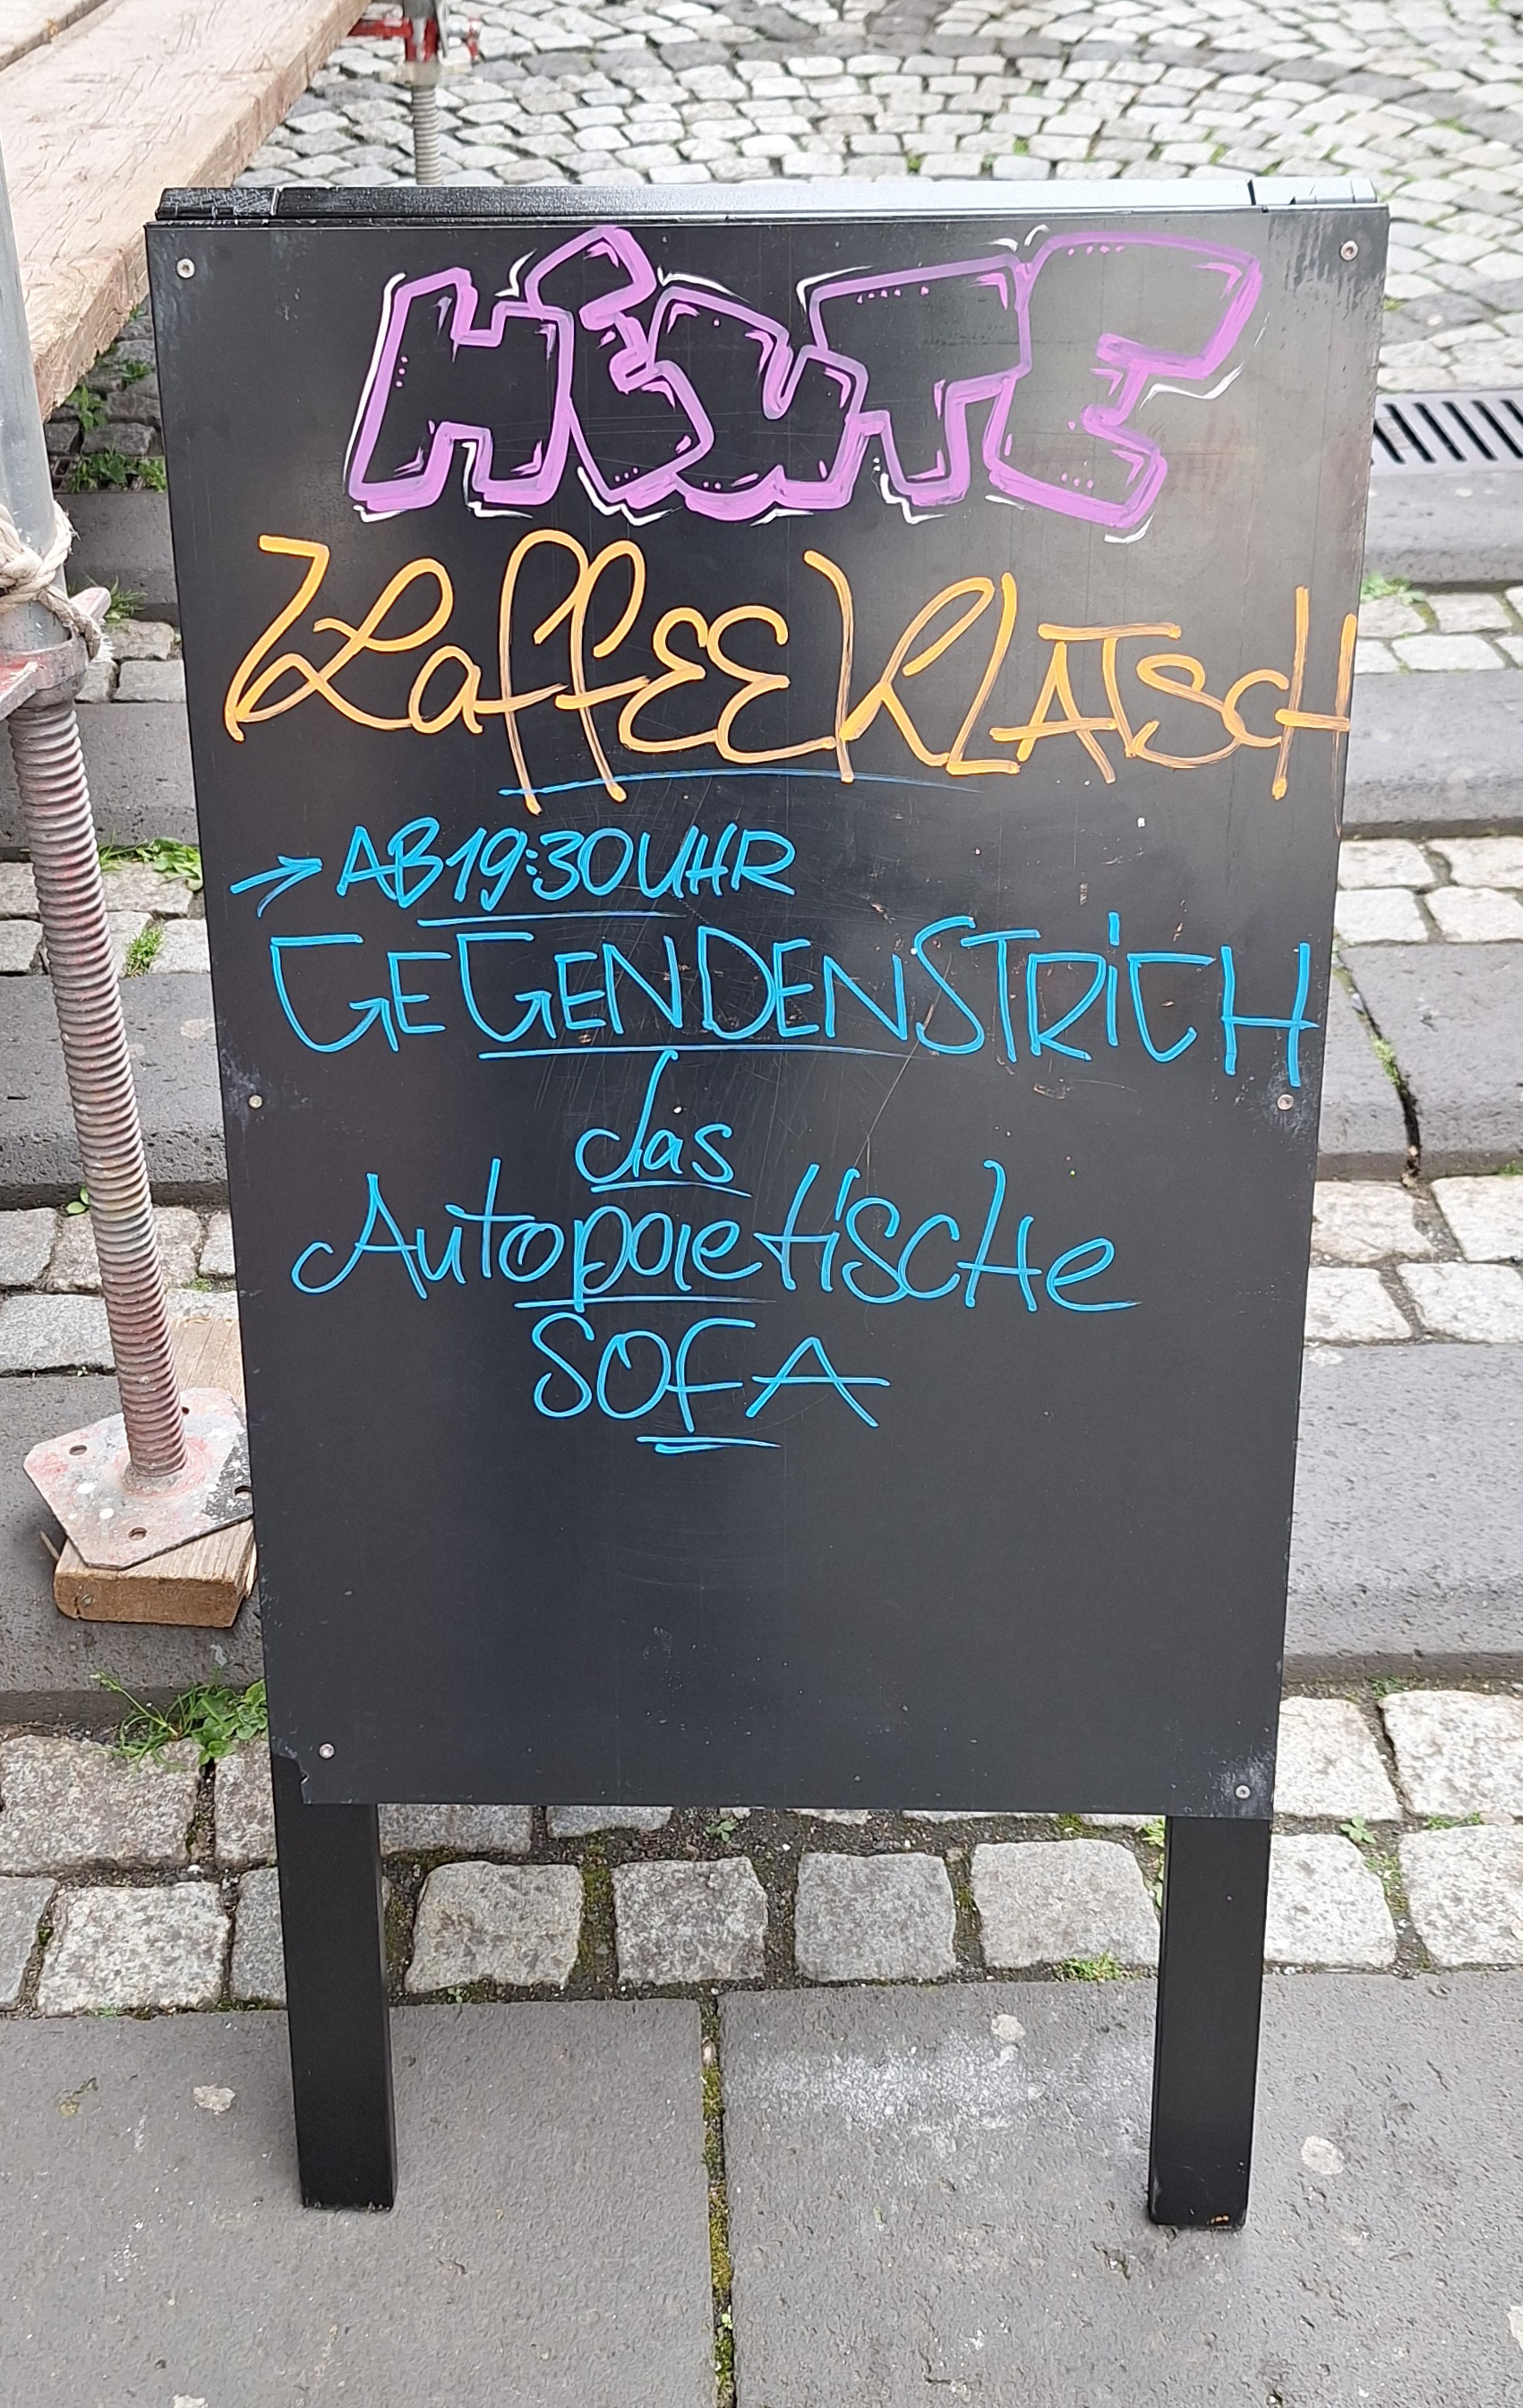 HEUTE
KaffEEKLATSCH
→ AB 19:30 UHR
GEGENDENSTRiCH
das
AutopoietiscHe
SOFA